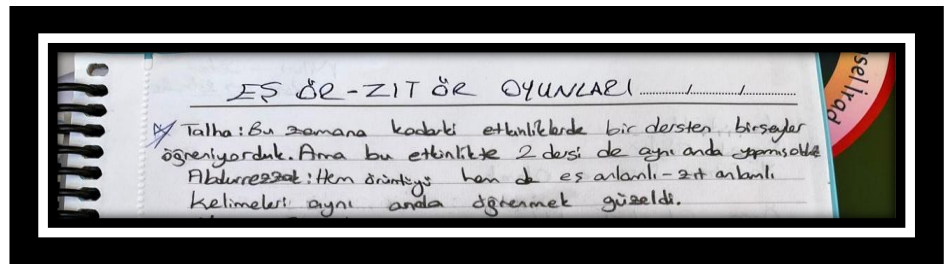 EŞ ÖR-ZIT ÖR OYUNLARI ......../......../........
Talha: Bu zamana kadarki etkinliklerde bir dersten birşeyler
öğreniyorduk. Ama bu etkinlikte 2 dersi de aynı anda yapmış olduk
Abdurrezzak: Hem örüntüyü hem de eş anlamlı-zıt anlamlı
kelimeleri aynı anda öğrenmek güzeldi.